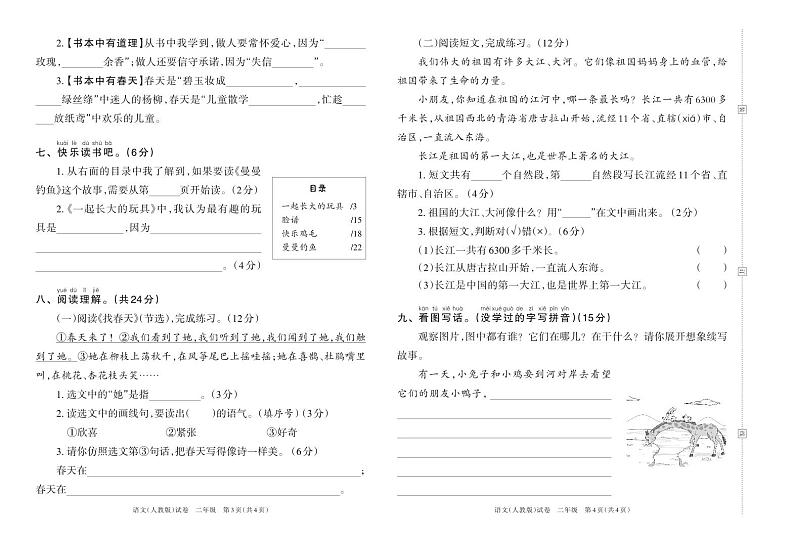 2.【书本中有道理】从书中我学到,做人要常怀爱心,因为“________
玫瑰,________余香”;做人还要信守承诺,因为“失信________”。
3.【书本中有春天】春天是“碧玉妆成____________,____________
_____绿丝绦”中迷人的杨柳,春天是“儿童散学____________,忙趁____
___放纸鸢”中欢乐的儿童。
kuài lè dú shū ba
七、快乐读书吧。(6分)
1.从右面的目录中我了解到,如果要读《曼曼
钓鱼》这个故事,需要从第______页开始读。(2分)
2.《一起长大的玩具》中,我认为最有趣的玩
具是____________,因为____________________
________________________________________
________________________________。(4分)
目录
一起长大的玩具 /3
脸谱 /15
快乐鸡毛 /18
曼曼钓鱼 /22
yuè dú lǐ jiě
八、阅读理解。(共24分)
(一)阅读《找春天》(节选),完成练习。(12分)
①春天来了!②我们看到了她,我们听到了她,我们闻到了她,我们触
到了她。③她在柳枝上荡秋千,在风筝尾巴上摇哇摇;她在喜鹊、杜鹃嘴里
叫,在桃花、杏花枝头笑……
1.选文中的“她”是指__________。(3分)
2.读选文中的画线句,要读出( )的语气。(填序号)(3分)
①欣喜 ②紧张 ③好奇
3.请你仿照选文第③句话,把春天写得像诗一样美。(6分)
春天在________________________________________________;
春天在________________________________________________。
语文(人教版)试卷 二年级 第3页(共4页)
(二)阅读短文,完成练习。(12分)
我们伟大的祖国有许多大江、大河。它们像祖国妈妈身上的血管,给
祖国带来了生命的力量。
小朋友,你知道在祖国的江河中,哪一条最长吗?长江一共有6300多
千米长,从祖国西北的青海省唐古拉山开始,流经11个省、直辖(xiá)市、自
治区,一直流入东海。
长江是祖国的第一大江,也是世界上著名的大江。
1.短文共有______个自然段,第______自然段写长江流经11个省、直
辖市、自治区。(4分)
2.祖国的大江、大河像什么?用“______”在文中画出来。(2分)
3.根据短文,判断对(√)错(×)。(6分)
(1)长江一共有6300多千米长。 ( )
(2)长江从唐古拉山开始,一直流入东海。 ( )
(3)长江是中国的第一大江,也是世界上第一大江。 ( )
kàn tú xiě huà méi xué guò de zì xiě pīn yīn
九、看图写话。(没学过的字写拼音)(15分)
观察图片,图中都有谁?它们在哪儿?在干什么?请你展开想象续写
故事。
有一天,小兔子和小鸡要到河对岸去看望
它们的朋友小鸭子,____________________
语文(人教版)试卷 二年级 第4页(共4页)